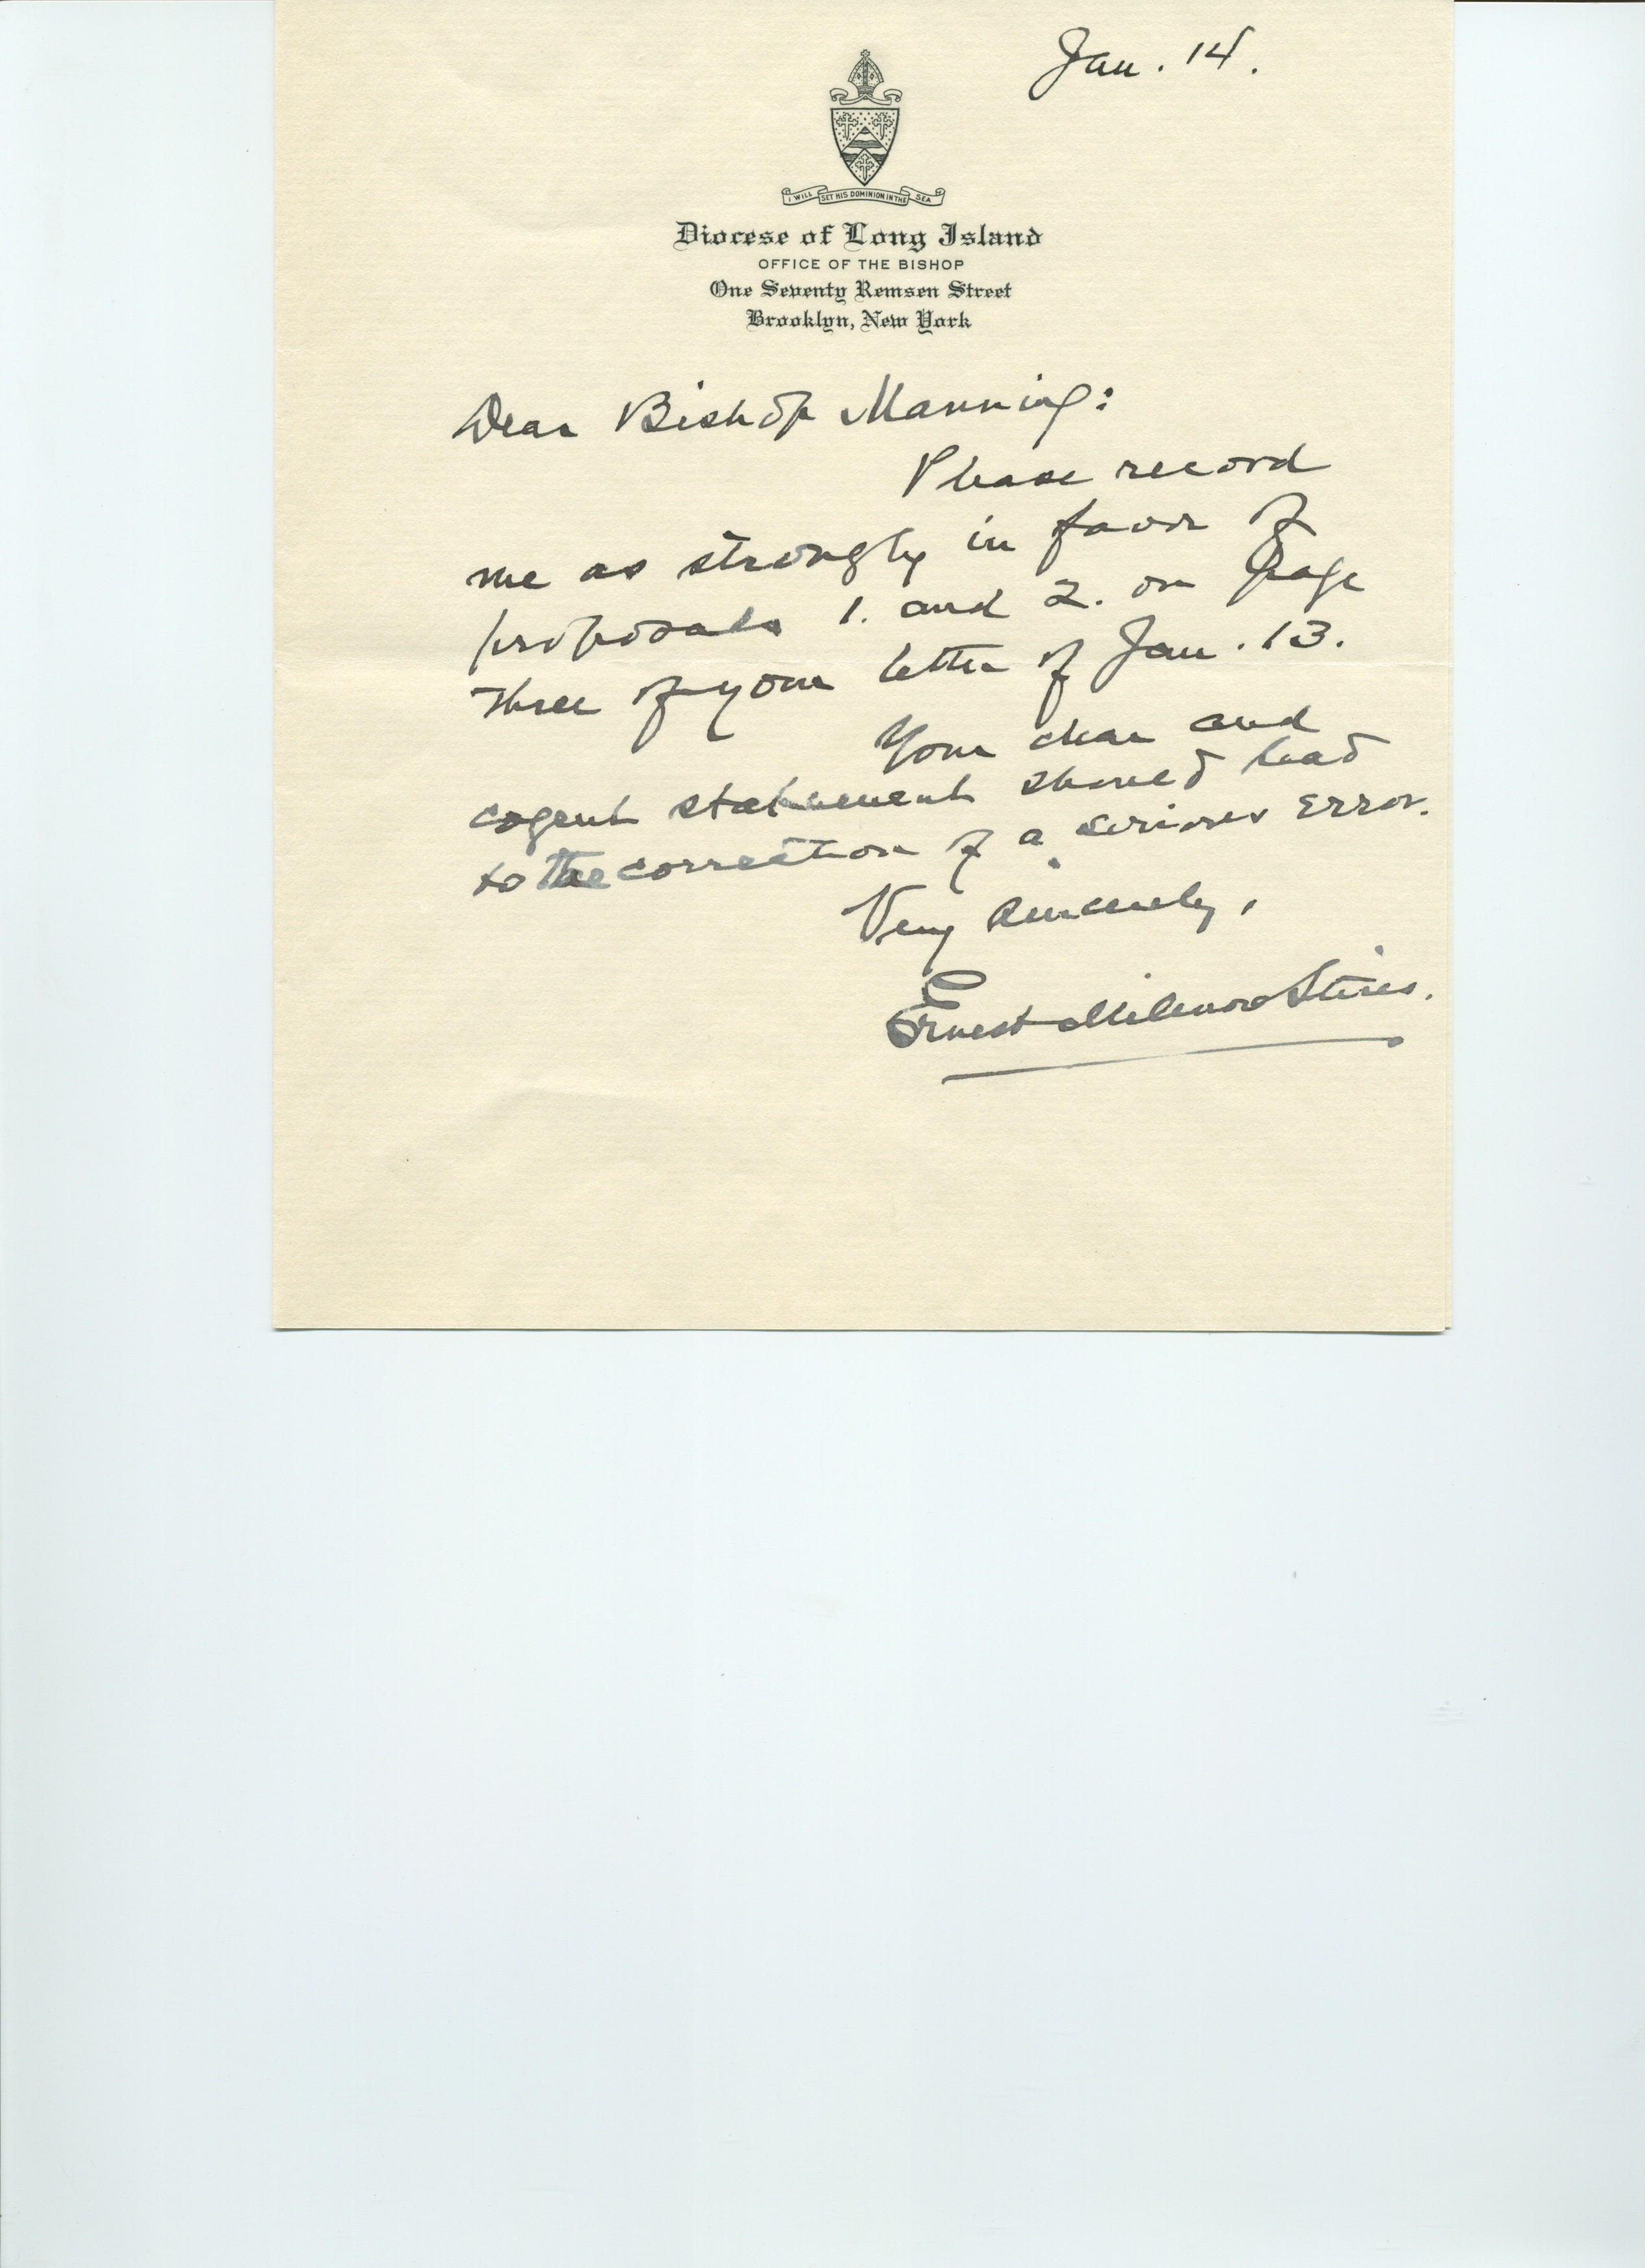 Jan. 14.
I WILL SET HIS DOMINION IN THE SEA
Diocese of Long Island
OFFICE OF THE BISHOP
One Seventy Remsen Street
Brooklyn, New York
Dear Bishop Manning:
Please record
me as strongly in favor of
proposals 1. and 2. on page
three of your letter of Jan. 13.
Your clear and
cogent statement should lead
to the correction of a serious error.
Very sincerely,
Ernest Milmore Stires.